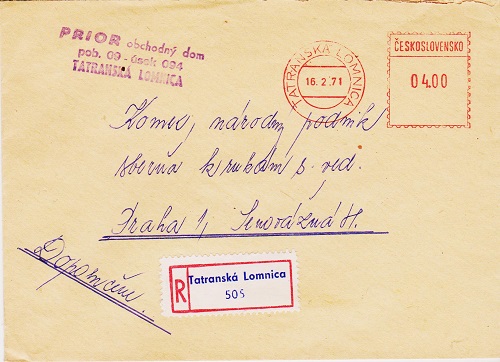 PRIOR obchodný dom
pob. 09 - úsek 094
TATRANSKÁ LOMNICA
TATRANSKÁ LOMNICA
16.2.71
ČESKOSLOVENSKO
04.00
národní podnik
sběrna s. ved.
Praha 1, Senovážná
Doporučeně.
R Tatranská Lomnica
505